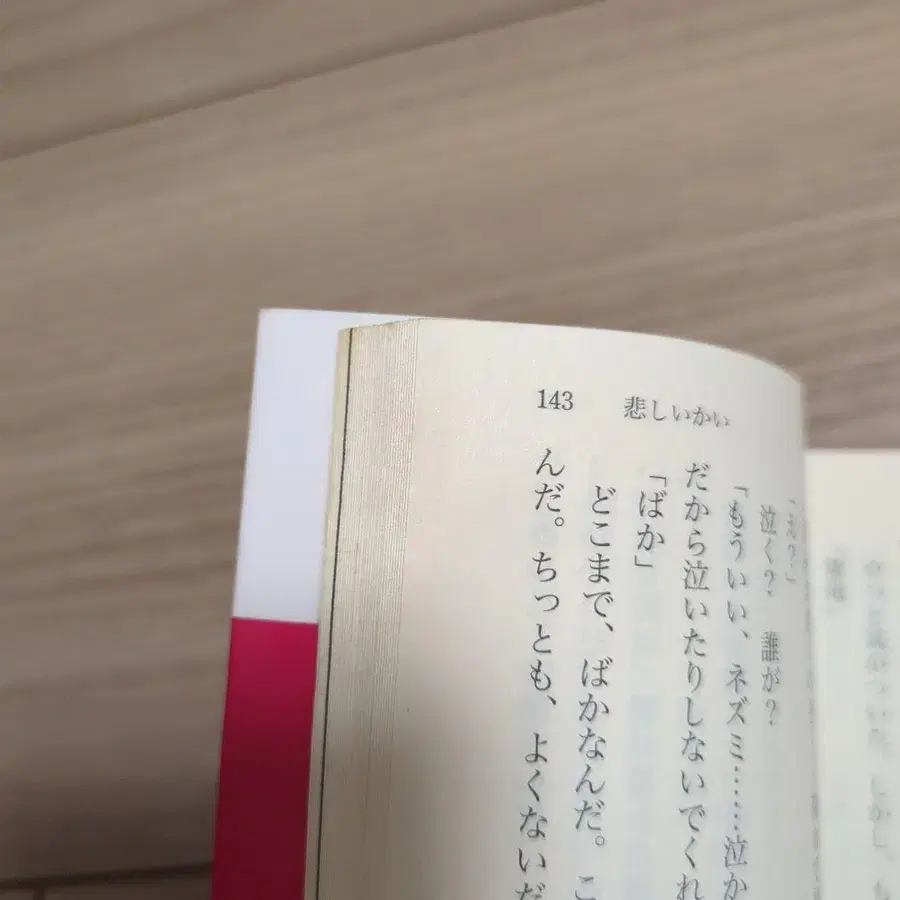 143 悲しいかい
「え？」
泣く？　誰が？
「もういい、ネズミ……泣か
だから泣いたりしないでくれ
「ばか」
どこまで、ばかなんだ。こ
んだ。ちっとも、よくないだ